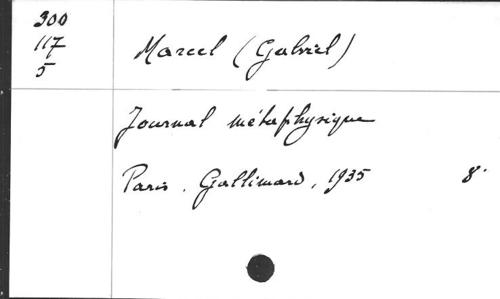 300
117
5
Marcel (Gabriel)
Journal métaphysique
Paris. Gallimard, 1935 8°